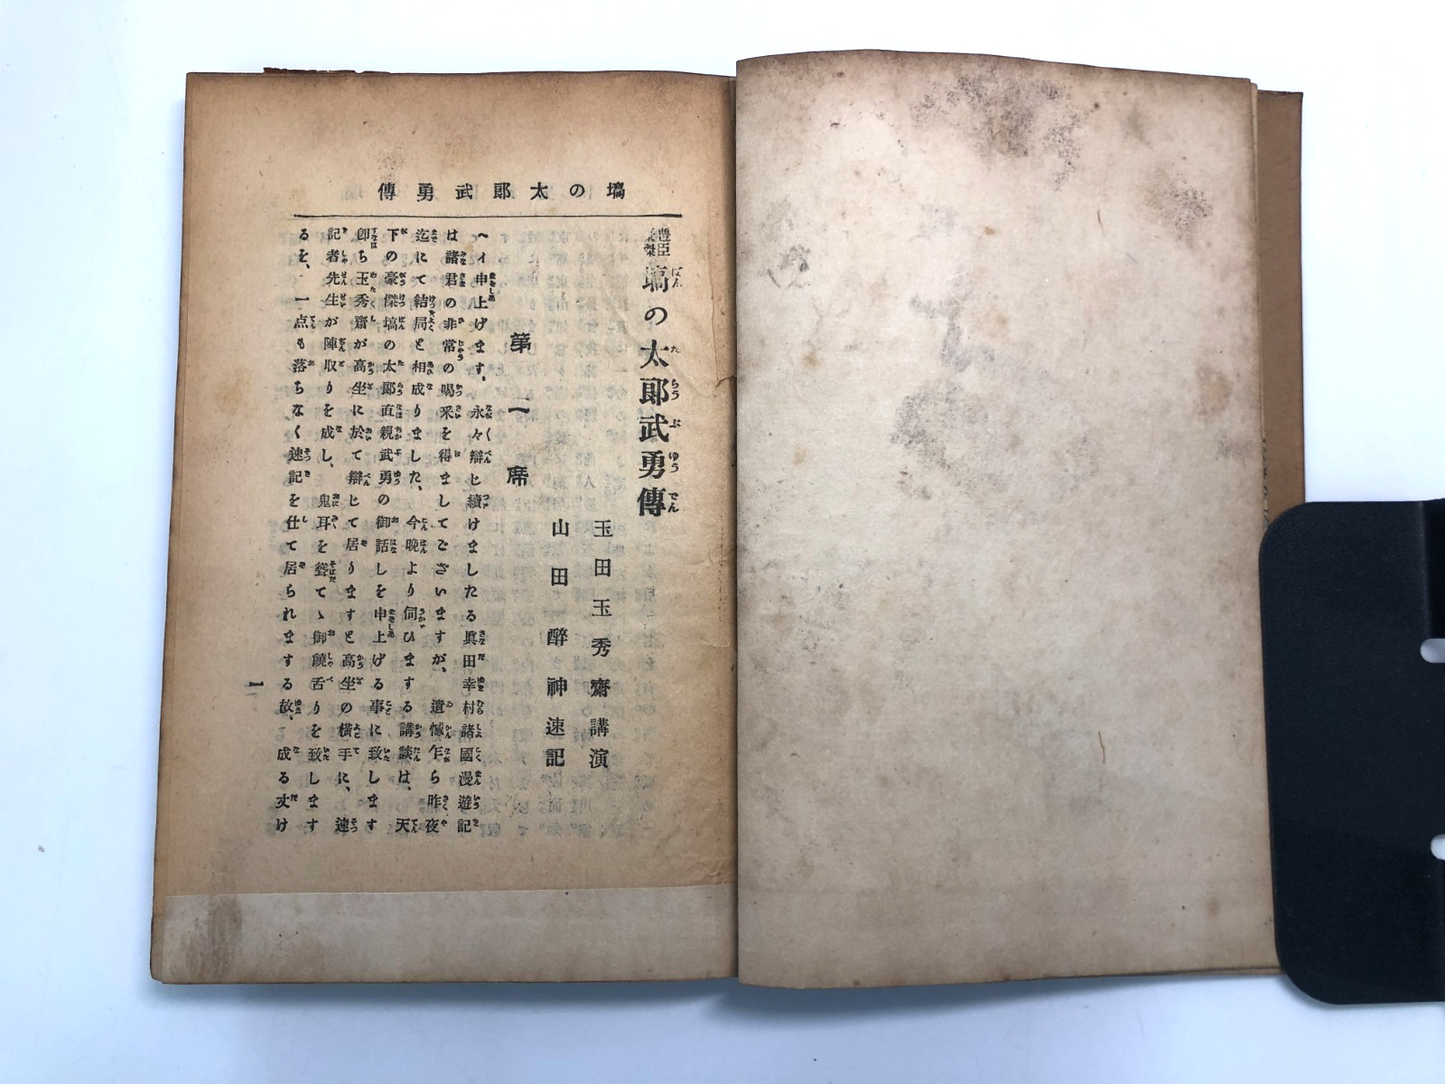 塙の太郎武勇傳
豐臣豪傑 塙の太郎武勇傳
玉田玉秀齋講演
山田醉神速記
第一席
ヘイ申上げます、永々辯じ續けましたる眞田幸村諸國漫遊記
は諸君の非常の喝釆を得ましてございますが、遺憾乍ら昨夜
迄にて結局と相成りました、今晩より伺ひまする講談は、天
下の豪傑塙の太郎直親武勇の御話しを申上げる事に致します
卽ち玉秀齋が高坐に於て辯じて居りますと高坐の横手に、速
記者先生が陣取りを成し、鬼耳を聳てゝ御饒舌りを致します
るを、一点も落ちなく速記を仕て居られまする故、成る丈け
一